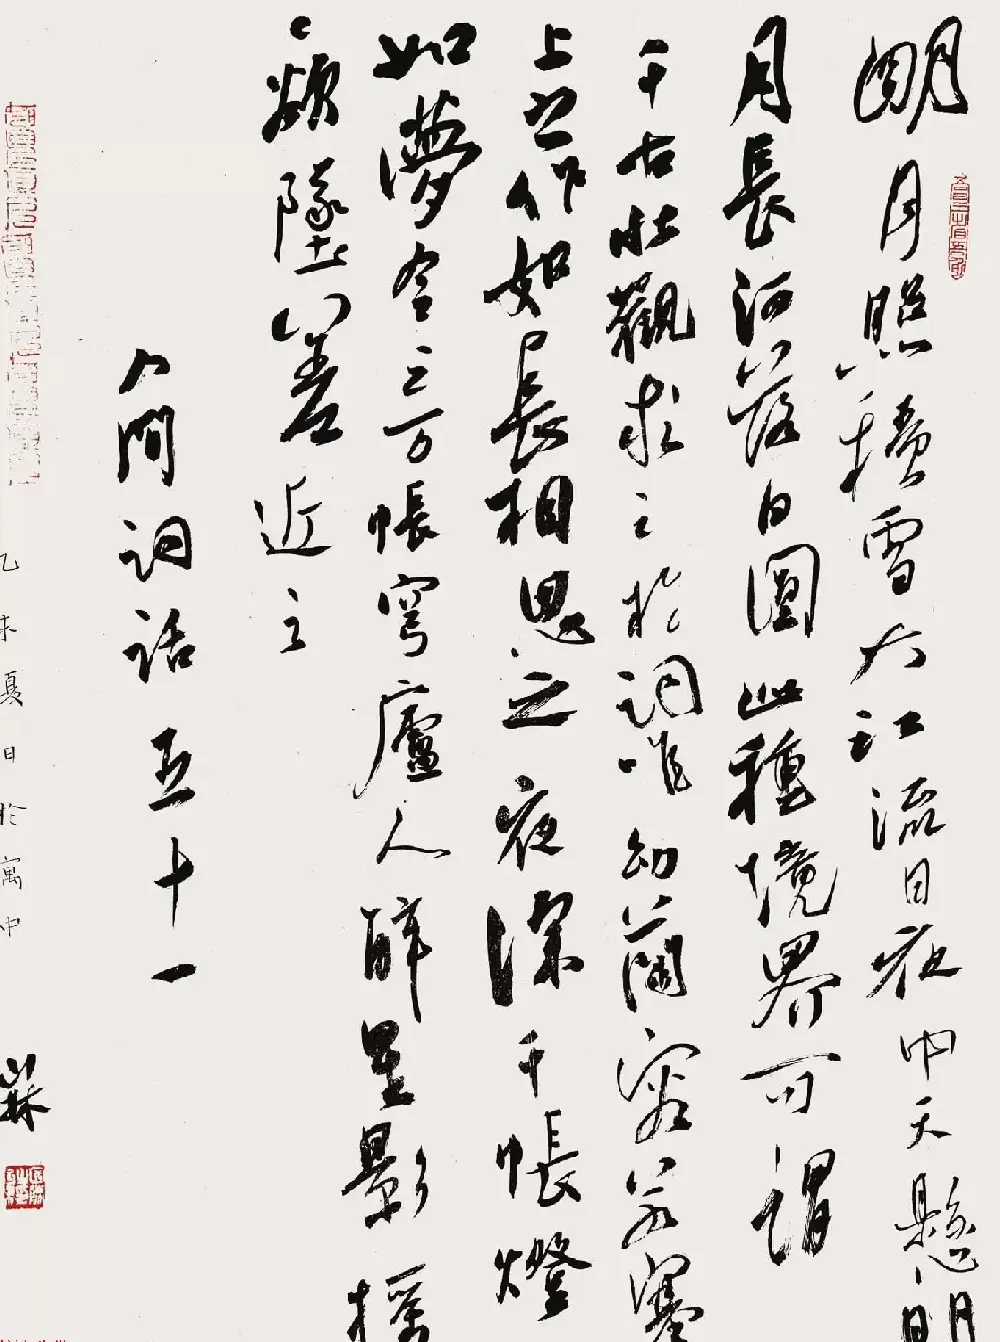 明月照積雪大江流日夜中天懸明
月長河落日圓此種境界可謂
千古壯觀求之於詞唯納蘭容若塞
上之作如長相思之夜深千帳燈
如夢令之万帳穹廬人醉星影搖
々欲墜差近之
人間詞話五十一
乙未夏日於寓中